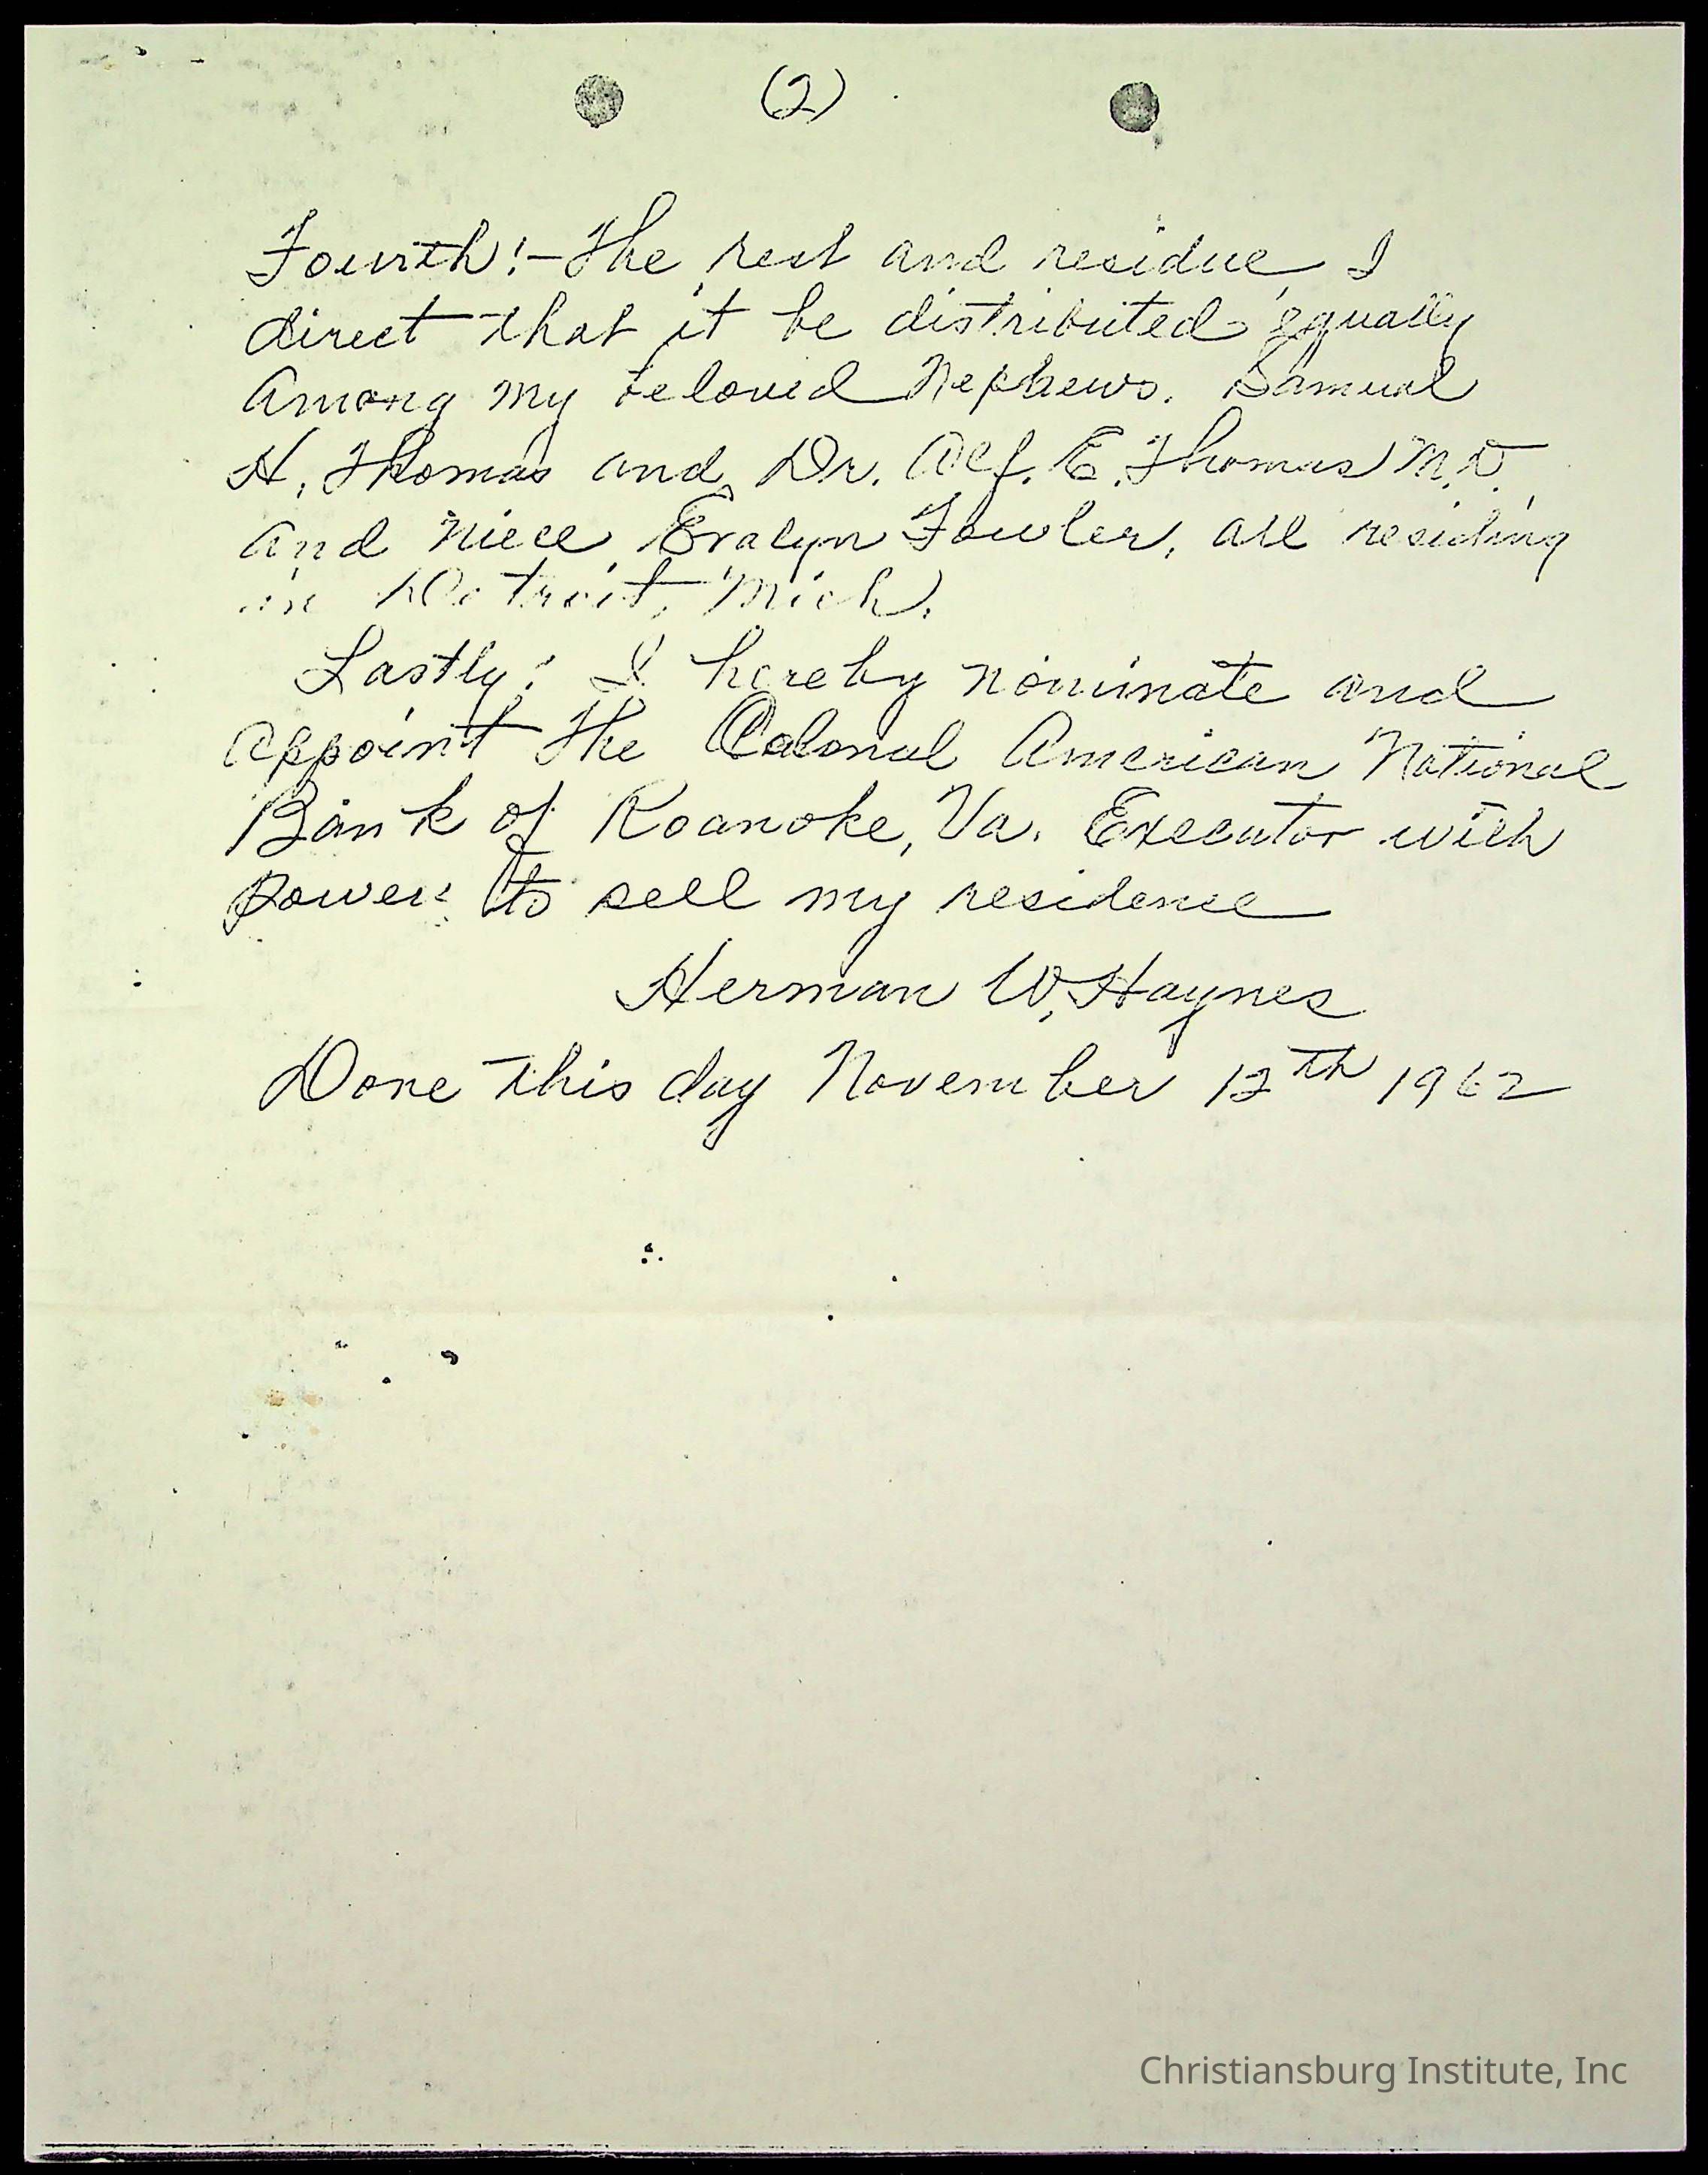 (2)
Fourth:- The rest and residue, I
direct that it be distributed equally
among my beloved Nephews. Samual
H. Thomas and Dr. Alf. E. Thomas M.D.
and niece Evalyn Fowler, all residing
in Detroit, Mich.
Lastly: I hereby nominate and
appoint the Colonial American National
Bank of Roanoke, Va. Executor with
Power to sell my residence
Herman W. Haynes
Done this day November 12th 1962
Christiansburg Institute, Inc